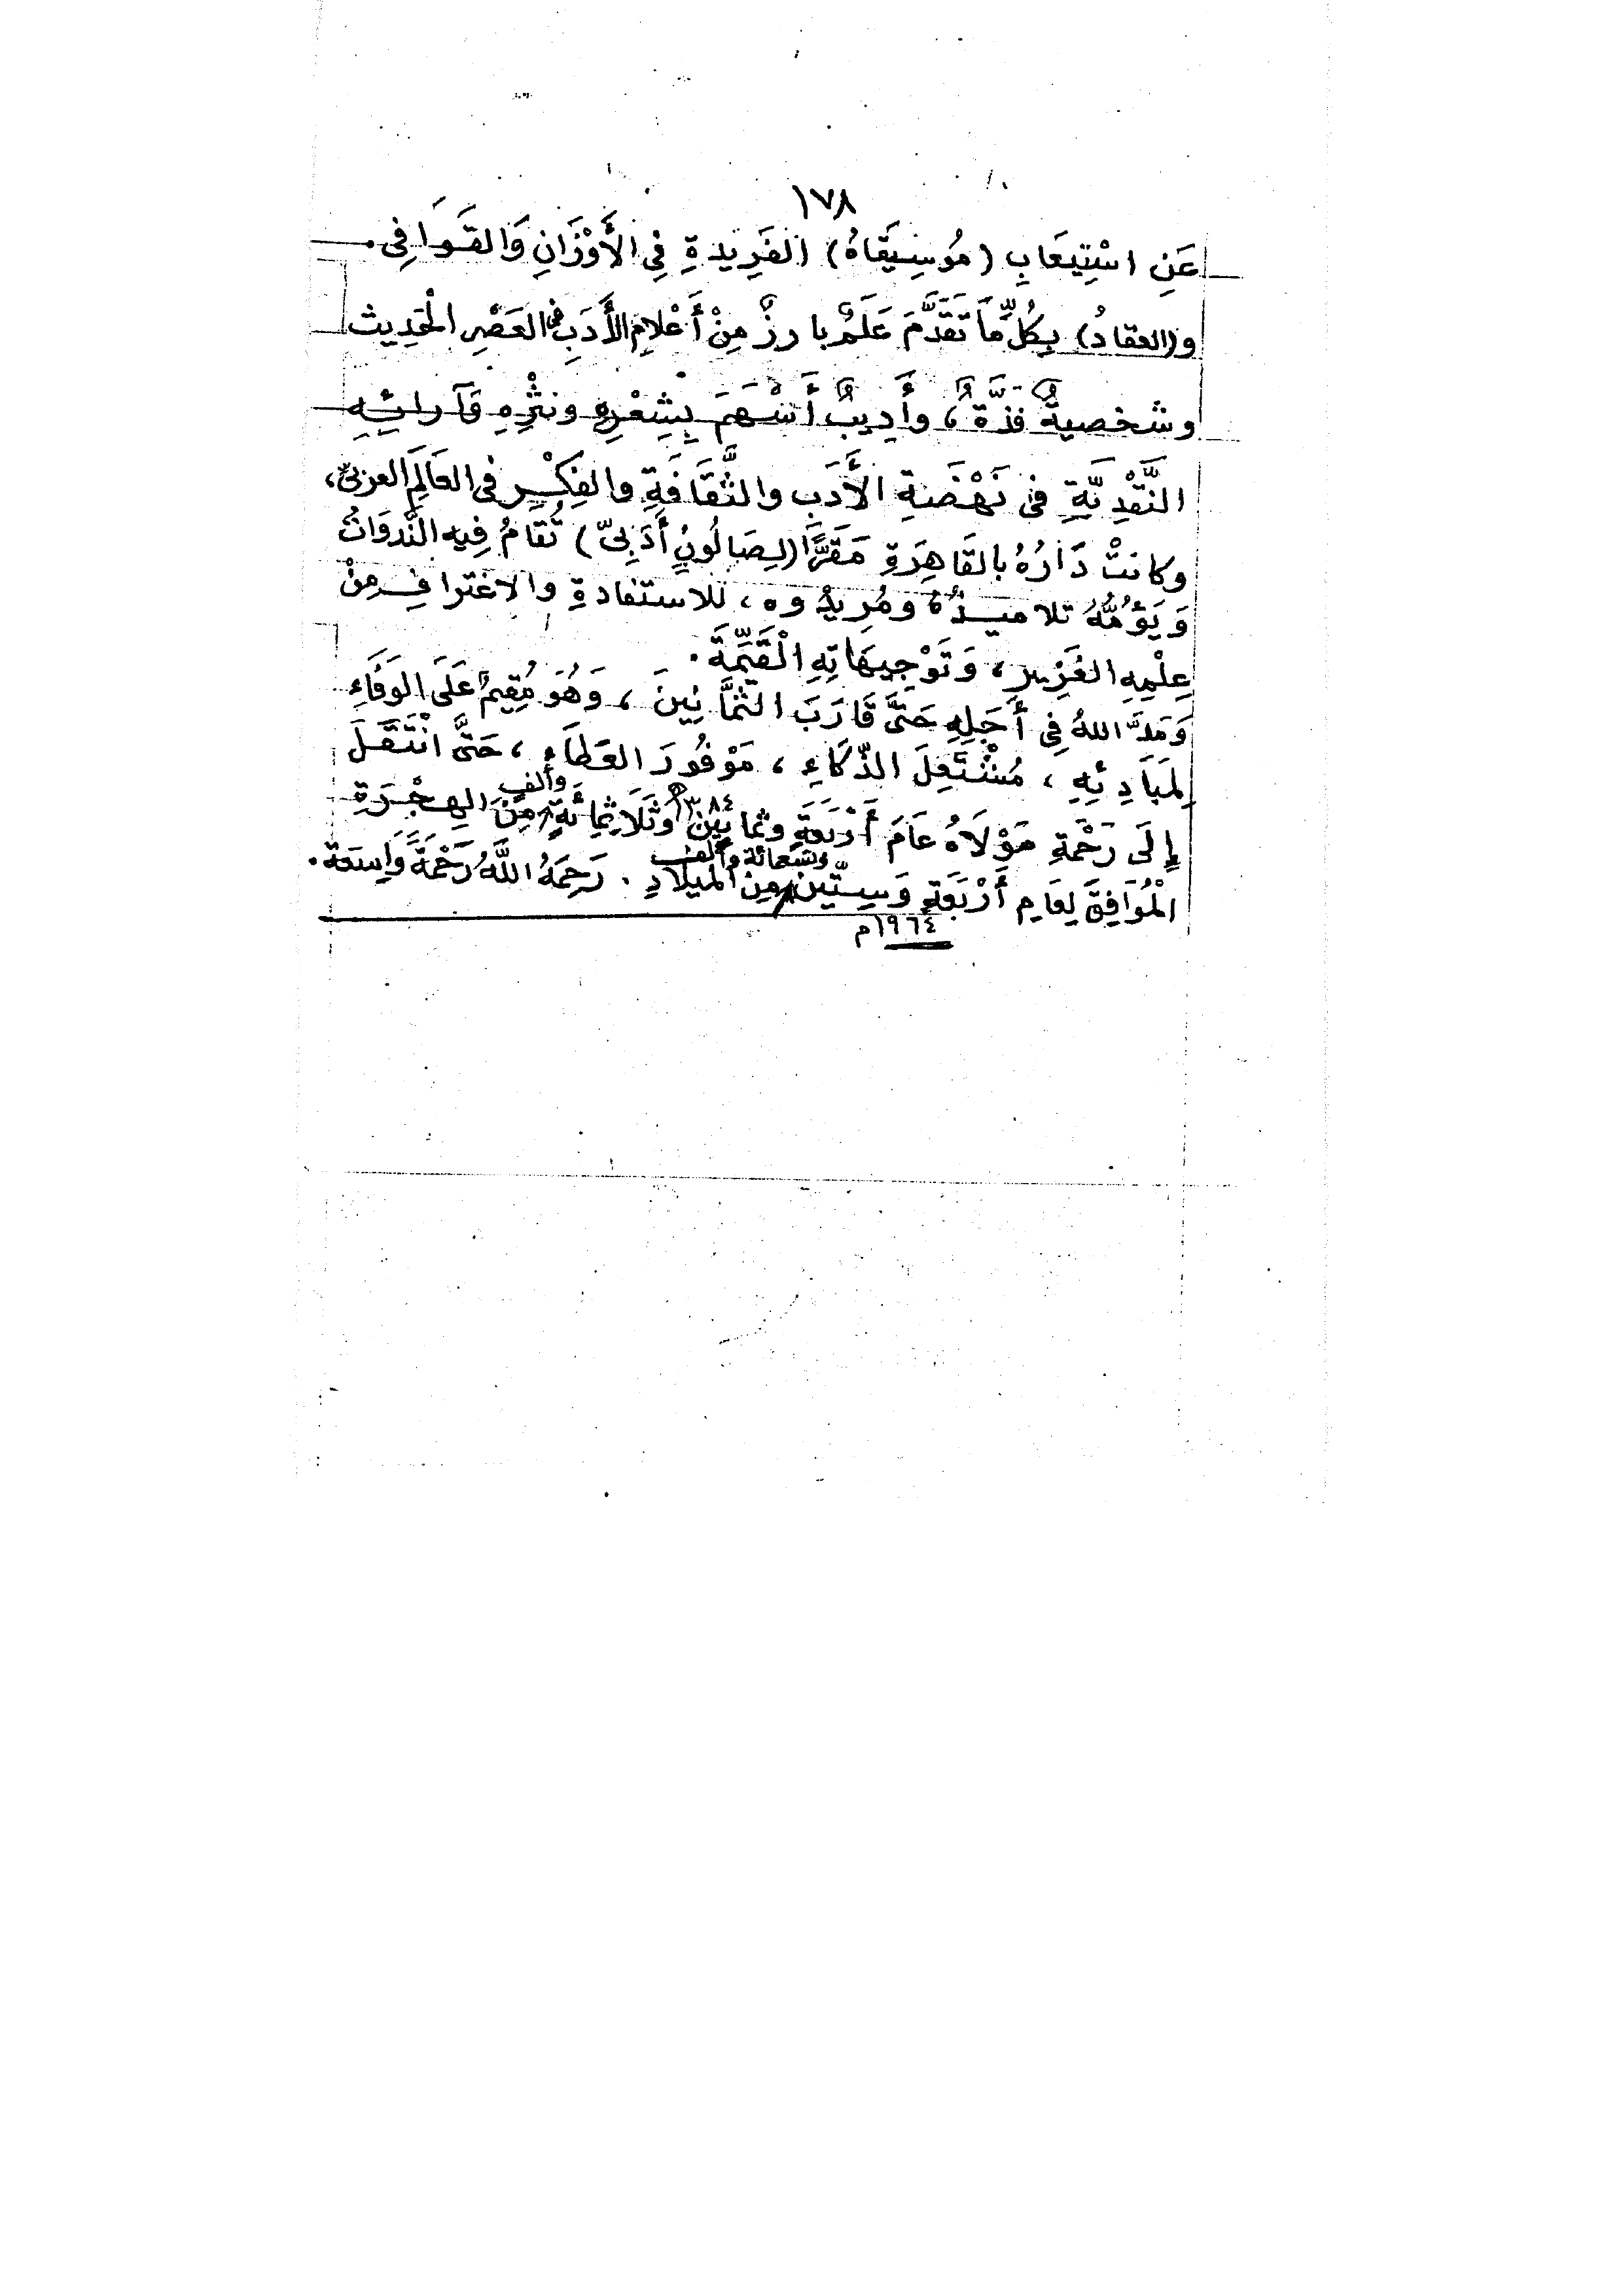 ١٧٨
عَنِ اسْتِيعَابِ (مُوسِيقَاهُ) الفَرِيدةِ فِي الأَوْزَانِ وَالقَوَافِي.
و(العقادُ) بِكُلِّ مَا تَقَدَّمَ عَلَمٌ بارزٌ مِنْ أَعْلامِ الأَدَبِ في العَصْرِ الْحَدِيث
وشخصيةٌ فذَّةٌ، وأَدِيبٌ أَسْهَمَ بِشِعْرِهِ ونثْرِهِ وَآرائِهِ
النَّقْدِيَّةِ فى نَهْضَةِ الأَدَبِ والثَّقَافَةِ والفِكْرِ فى العَالَمِ العربىِّ،
وكانتْ دَارُهُ بالقَاهِرَةِ مَقَرًّا (لِصَالُونٍ أَدَبِيٍّ) تُقَامُ فِيهِ النَّدوَاتُ
وَيَؤُمُّهُ تلاميذُهُ ومُرِيدُوه، للاستفادةِ والاغترافِ مِنْ
عِلْمِهِ الغَزِيرِ، وَتَوْجِيهَاتِهِ الْقَيِّمَةِ.
وَمَدَّ اللهُ فِي أَجَلِهِ حَتَّى قَارَبَ الثمَّانِينَ، وَهُوَ مُقِيمٌ عَلَى الوَفَاءِ
لِمَبَادِئِهِ، مُشْتَعِلَ الذَّكَاءِ، مَوْفُورَ العَطَاءِ، حَتَّى انْتَقَلَ
إِلَى رَحْمَةِ مَوْلَاهُ عَامَ أَرْبَعَةٍ وثمانِينَ وثَلَاثِمِائَةٍ وألفٍ مِنَ الهِجْرَةِ ١٣٨٤هـ
الْمُوَافِقَ لِعَامِ أَرْبَعَةٍ وَسِتِّينَ وتسعمائة وألف مِنَ الْمِيلَادِ. رَحِمَهُ اللَّهُ رَحْمَةً وَاسِعَةً.
١٩٦٤م